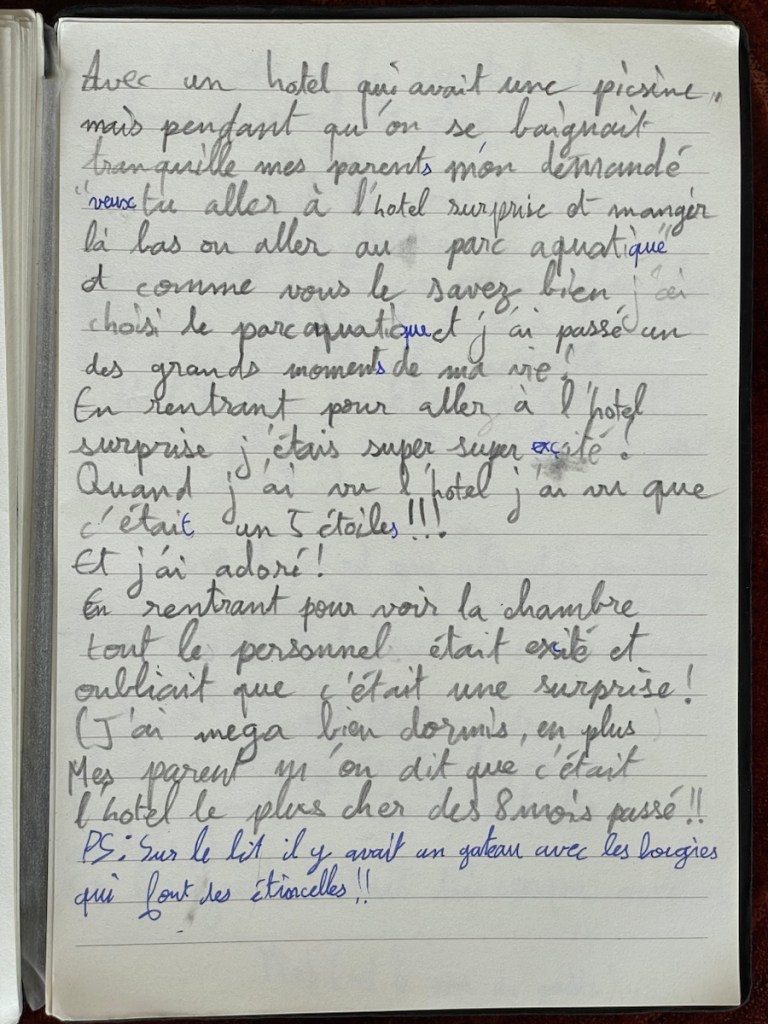 Avec un hotel qui avait une picsine,,
mais pendant qu'on se baignait
tranquille mes parents m'on demandé
"veux tu aller à l'hotel surprise et manger
là bas ou aller au parc aquatique"
et comme vous le savez bien j'ai
choisi le parc aquatique et j'ai passé un
des grands moments de ma vie!
En rentrant pour aller à l'hotel
surprise j'étais super super exçité!
Quand j'ai vu l'hotel j'ai vu que
c'était un 5 étoiles!!!
Et j'ai adoré!
En rentrant pour voir la chambre
tout le personnel était exité et
oubliait que c'était une surprise!
(J'ai mega bien dormis, en plus)
Mes parent m'on dit que c'était
l'hotel le plus cher des 8 mois passé!!
PS: Sur le lit il y avait un gateau avec les bougies
qui font des étincelles!!